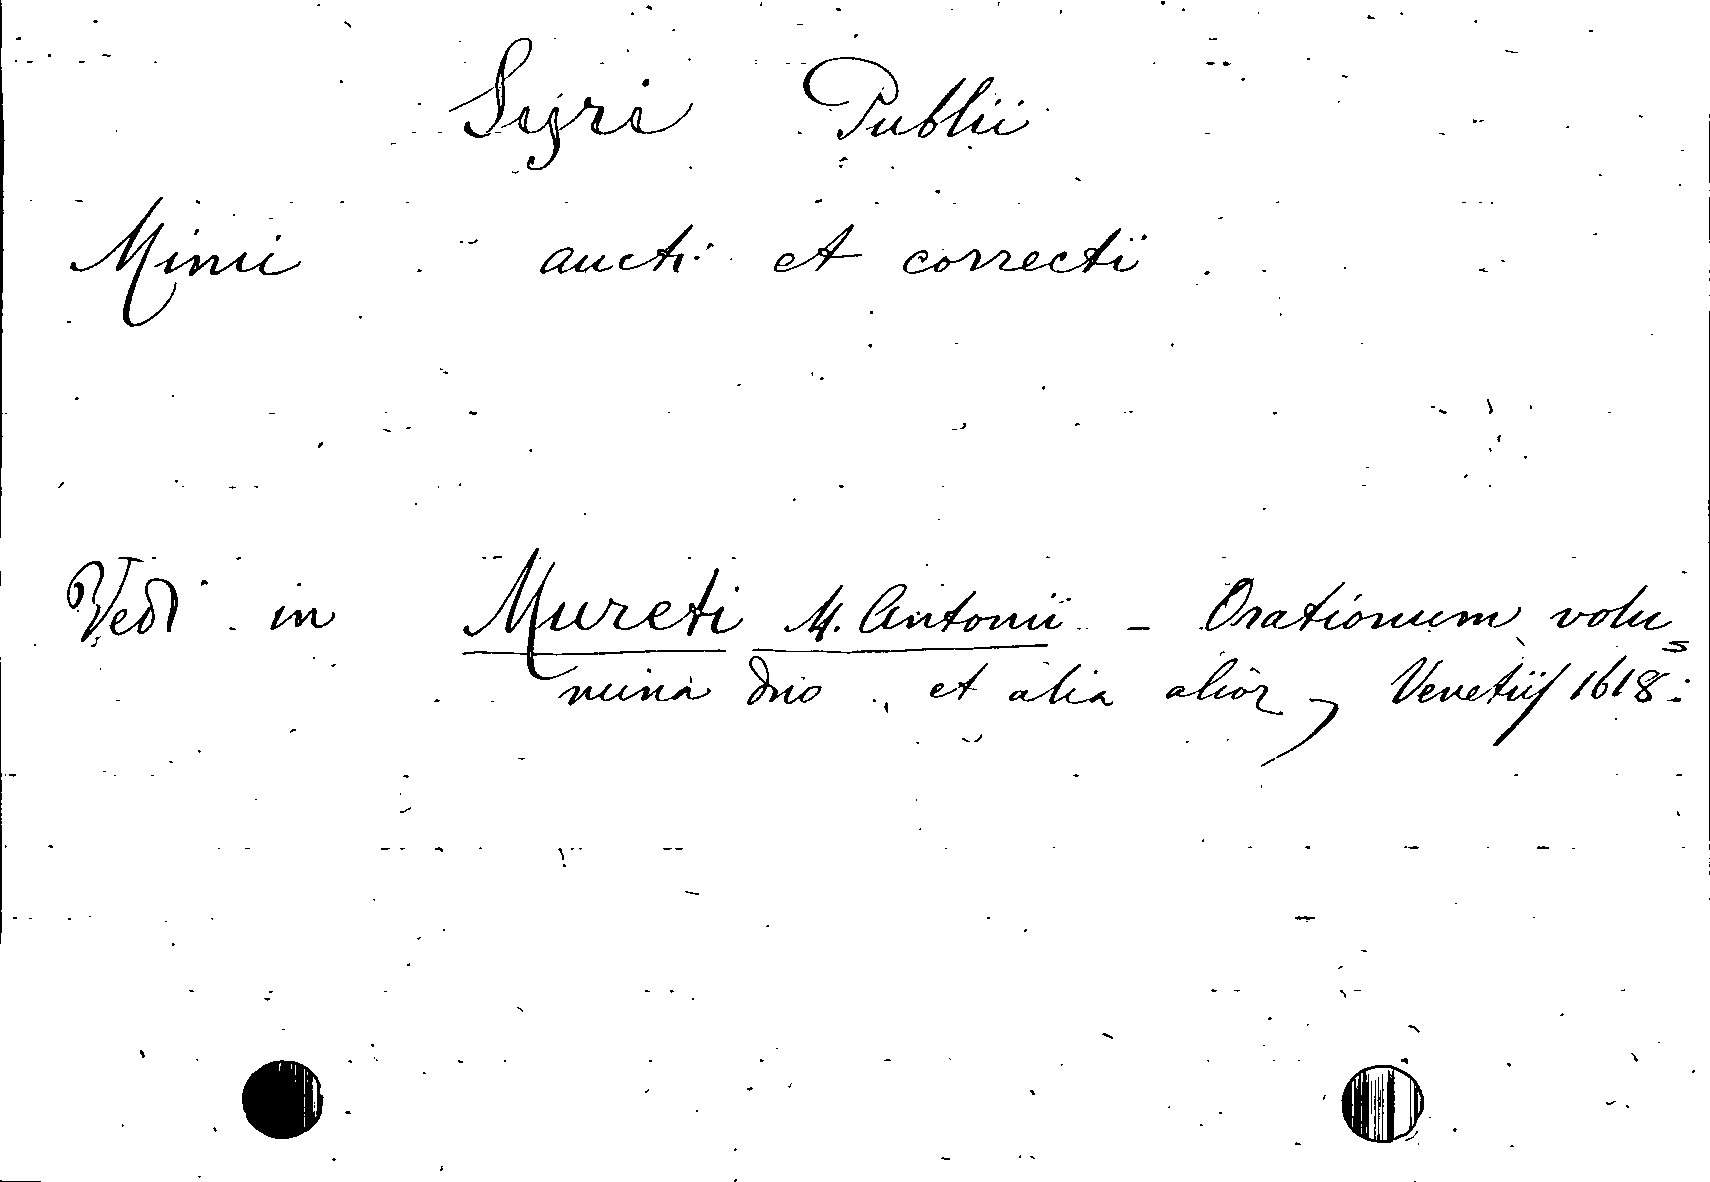 Syri Publii
Mimi aucti et correcti
Vedi in Mureti M. Antonii - Orationum volu=
mina duo, et alia alior - Venetiis 1618.